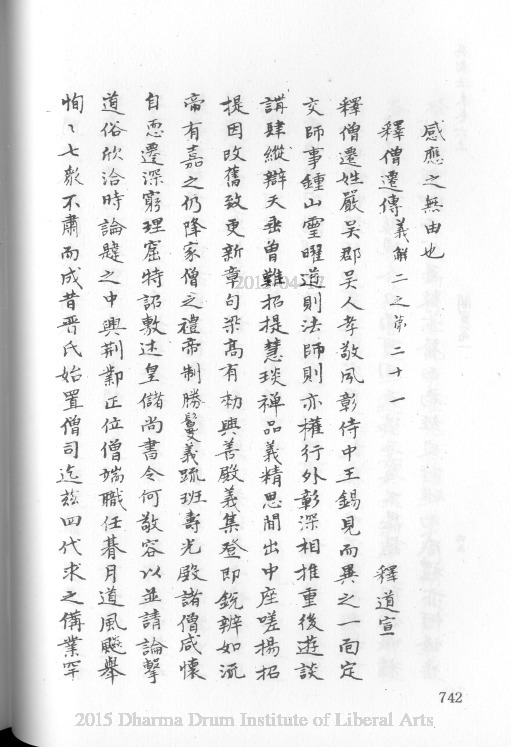 感應之無由也
釋僧遷傳 義解二之第二十一 釋道宣
釋僧遷姓嚴吴郡吴人孝敬夙彰侍中王錫見而異之一面定
交師事鍾山靈曜道則法師則亦權行外彰深相推重後遊談
講肆縱辯天垂曾難招提慧琰禪品義精思間出中座嗟揚招
提因改舊致更新章句梁高有勑興善殿義集登即銳辨如流
帝有嘉之仍降家僧之禮帝制勝鬘義䟽班壽光殿諸僧咸懷
自恧遷深窮理窟特詔敷述皇儲尚書令何敬容以並請論擊
道俗欣洽時論韙之中興荆鄴正位僧端職任朞月道風飈舉
恂〻七衆不肅而成昔晋氏始置僧司迄兹四代求之備業罕
742
2015-04-17
2015 Dharma Drum Institute of Liberal Arts